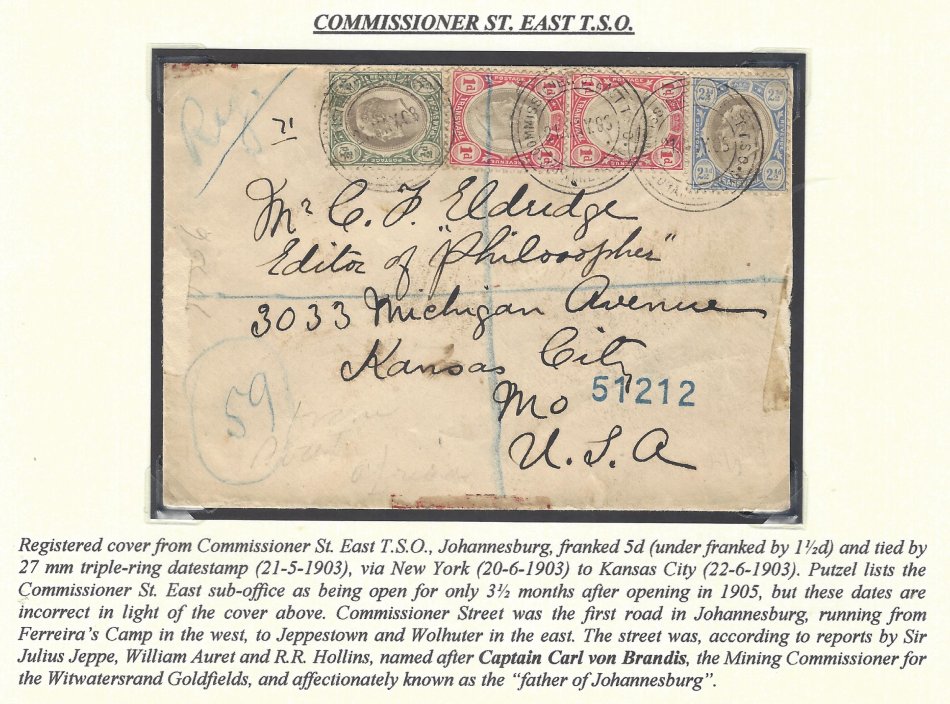 COMMISSIONER ST. EAST T.S.O.
Reg
POSTAGE
TRANSVAAL
REVENUE
1d 1d
1d 1d
2½d 2½d
2½d 2½d
Mr C. F. Eldridge
Editor of "Philosopher"
3033 Michigan Avenue
Kansas City
Mo
51212
U. S. A
59
Registered cover from Commissioner St. East T.S.O., Johannesburg, franked 5d (under franked by 1½d) and tied by
27 mm triple-ring datestamp (21-5-1903), via New York (20-6-1903) to Kansas City (22-6-1903). Putzel lists the
Commissioner St. East sub-office as being open for only 3½ months after opening in 1905, but these dates are
incorrect in light of the cover above. Commissioner Street was the first road in Johannesburg, running from
Ferreira's Camp in the west, to Jeppestown and Wolhuter in the east. The street was, according to reports by Sir
Julius Jeppe, William Auret and R.R. Hollins, named after Captain Carl von Brandis, the Mining Commissioner for
the Witwatersrand Goldfields, and affectionately known as the "father of Johannesburg".